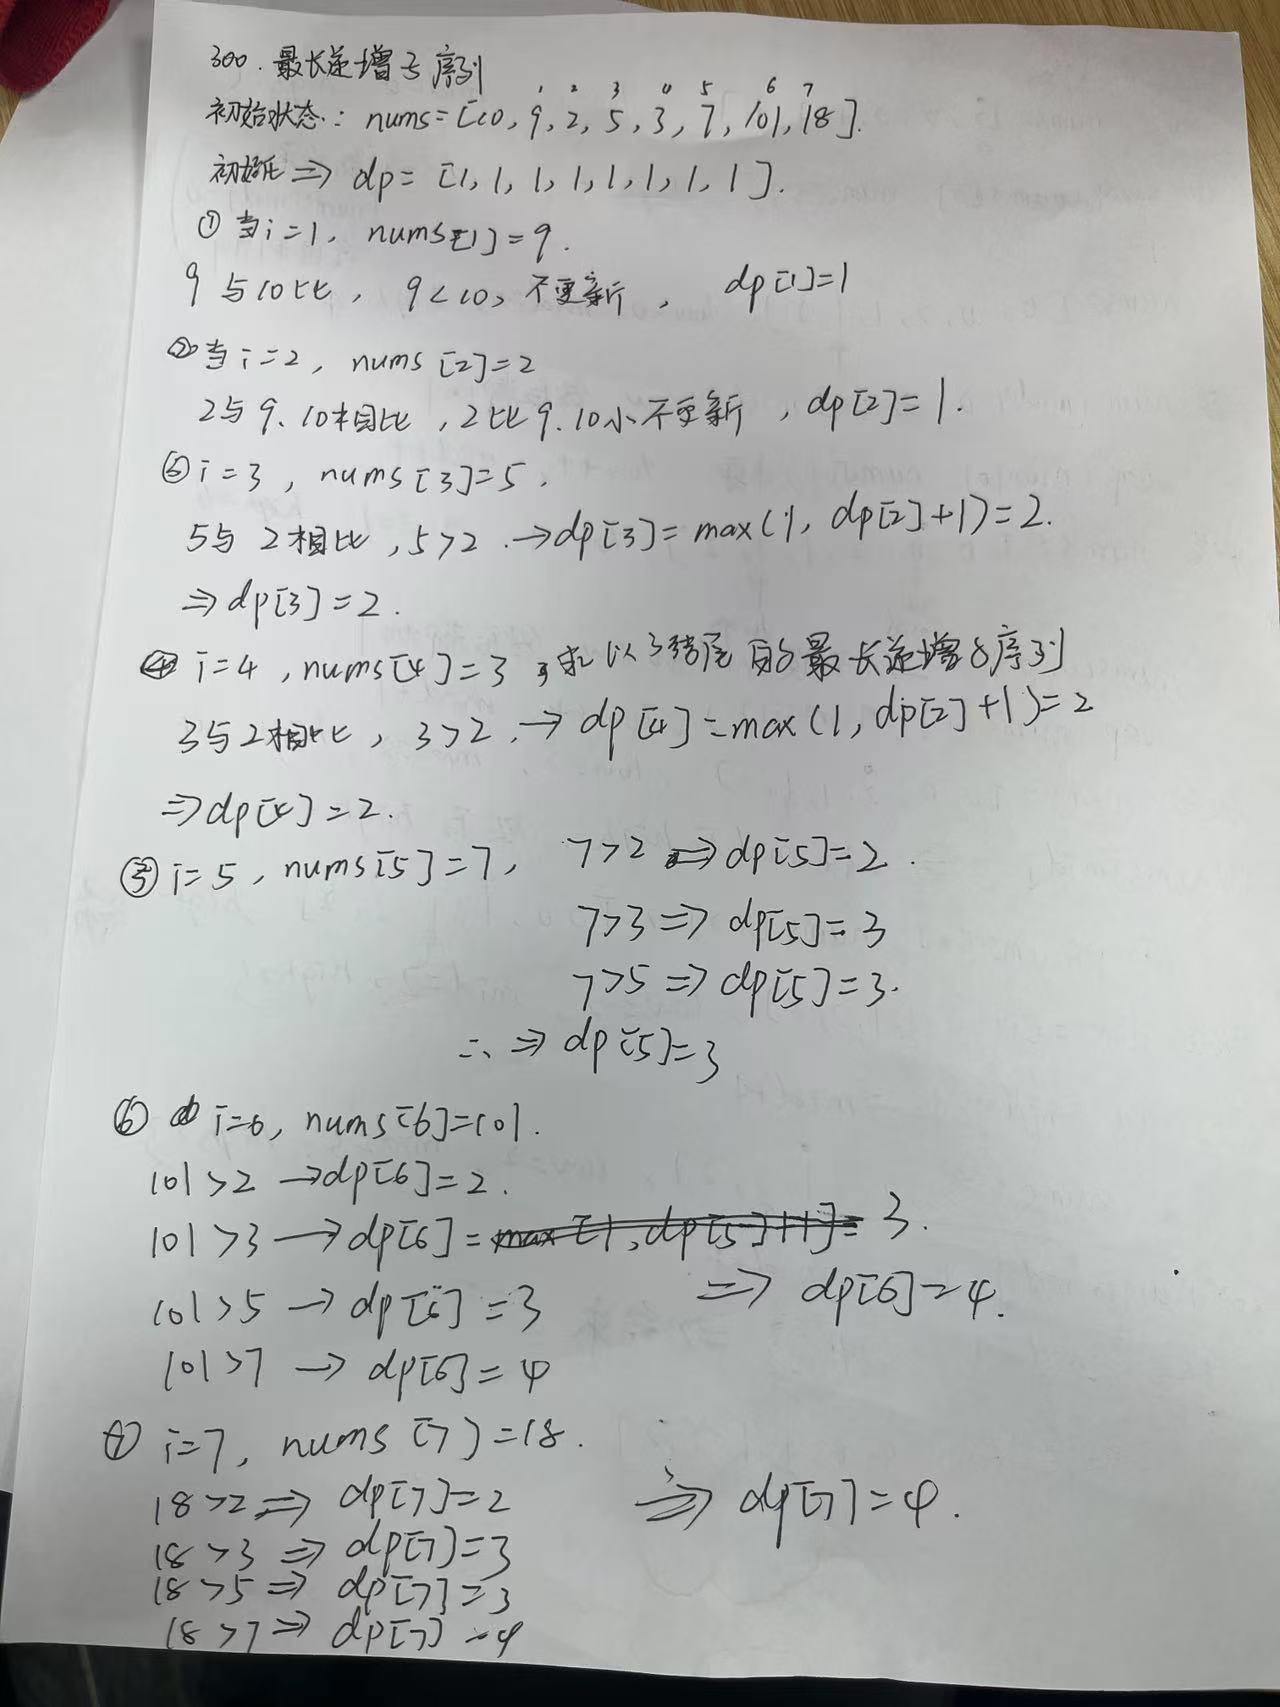 300. 最长递增子序列
1 2 3 4 5 6 7
初始状态: nums=[10, 9, 2, 5, 3, 7, 101, 18].
初始化 ⇒ dp= [1, 1, 1, 1, 1, 1, 1, 1].
① 当i=1, nums[1]=9.
9与10比, 9<10, 不更新, dp[1]=1
② 当i=2, nums[2]=2
2与9.10相比, 2比9.10小不更新, dp[2]=1.
③ i=3, nums[3]=5,
5与2相比, 5>2. →dp[3]= max(1, dp[2]+1)=2.
⇒ dp[3]=2.
④ i=4, nums[4]=3, 求以3结尾的最长递增子序列
3与2相比, 3>2. → dp[4]=max(1, dp[2]+1)=2
⇒dp[4]=2.
⑤ i=5, nums[5]=7, 7>2 ⇒dp[5]=2.
7>3 ⇒ dp[5]=3
7>5 ⇒ dp[5]=3.
∴ ⇒ dp[5]=3
⑥ i=6, nums[6]=101.
101>2 →dp[6]=2.
101>3 →dp[6]=max[1, dp[5]+1]= 3.
101>5 → dp[6]=3 ⇒ dp[6]=4.
101>7 → dp[6]=4
⑦ i=7, nums[7]=18.
18>2 ⇒ dp[7]=2 ⇒ dp[7]=4.
18>3 ⇒ dp[7]=3
18>5 ⇒ dp[7]=3
18>7 ⇒ dp[7]=4